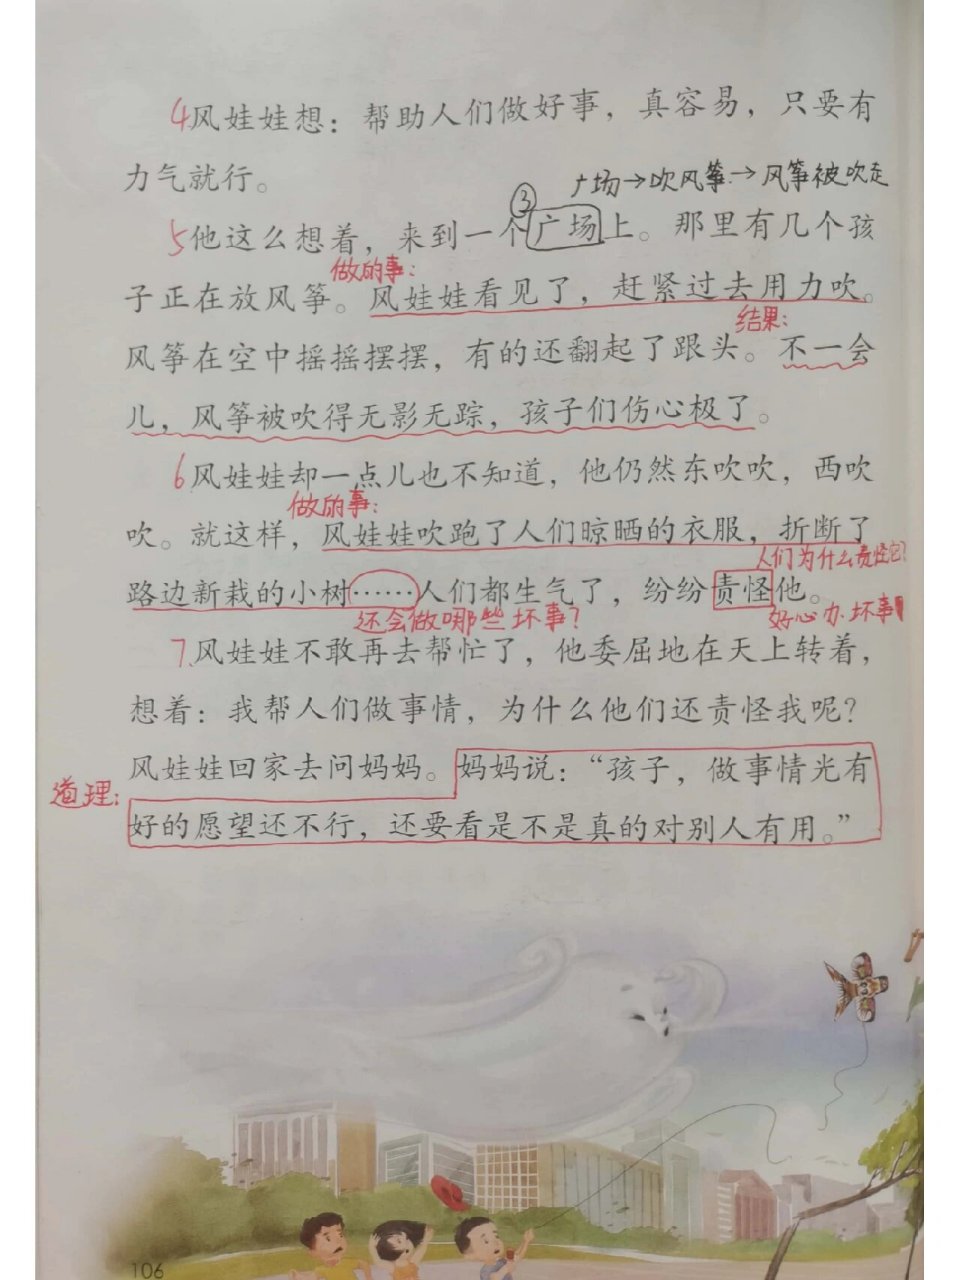 4风娃娃想：帮助人们做好事，真容易，只要有
力气就行。
广场→吹风筝→风筝被吹走
③
5他这么想着，来到一个广场上。那里有几个孩
做的事：
子正在放风筝。风娃娃看见了，赶紧过去用力吹。
结果：
风筝在空中摇摇摆摆，有的还翻起了跟头。不一会
儿，风筝被吹得无影无踪，孩子们伤心极了。
6风娃娃却一点儿也不知道，他仍然东吹吹，西吹
做的事：
吹。就这样，风娃娃吹跑了人们晾晒的衣服，折断了
人们为什么责怪它？
路边新栽的小树……人们都生气了，纷纷责怪他。
还会做哪些坏事？
好心办坏事！
7.风娃娃不敢再去帮忙了，他委屈地在天上转着，
想着：我帮人们做事情，为什么他们还责怪我呢？
风娃娃回家去问妈妈。妈妈说：“孩子，做事情光有
道理：
好的愿望还不行，还要看是不是真的对别人有用。”
106